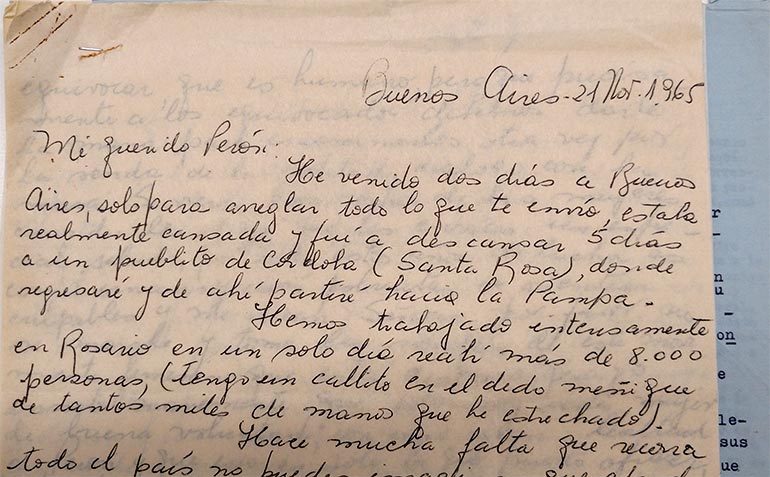 Buenos Aires-21 Nov. 1.965
Mi querido Perón:
He venido dos días a Buenos
Aires, solo para arreglar todo lo que te envío, estaba
realmente cansada y fuí a descansar 5 días
a un pueblito de Córdoba (Santa Rosa), donde
regresaré y de ahí partiré hacia la Pampa.
Hemos trabajado intensamente
en Rosario en un solo día recibí más de 8.000
personas, (tengo un callito en el dedo meñique
de tantos miles de manos que he estrechado).
Hace mucha falta que recorra
todo el país no puedes
r
n
u
on
e
le-
sus
ue